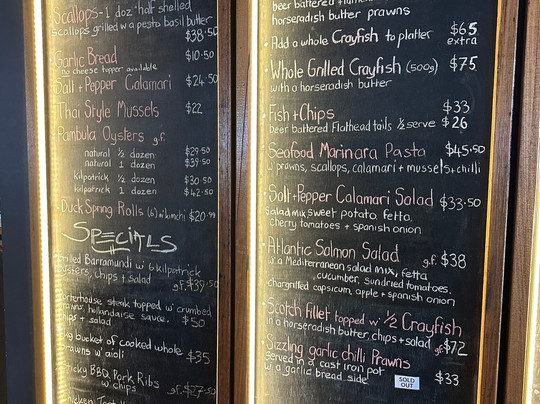 Scallops - 1 doz half shelled
scallops grilled w a pesto basil butter
$38.50
Garlic Bread $10.50
no cheese topper available
Salt + Pepper Calamari $24.50
Thai Style Mussels $22
Pambula Oysters g.f.
natural ½ dozen $29.50
natural 1 dozen $39.50
kilpatrick ½ dozen $30.50
kilpatrick 1 dozen $42.50
Duck Spring Rolls (6) w kimchi $20.99
SPECIALS
Barramundi w 6 kilpatrick
oysters, chips + salad
g.f. $39.50
steak topped w crumbed
prawns, hollandaise sauce,
chips + salad $50
bucket of cooked whole
prawns w aioli $35
Sticky BBQ Pork Ribs
w chips g.f. $27.50
Chicken
beer battered
horseradish butter prawns
Add a whole Crayfish to platter $65
extra
Whole Grilled Crayfish (500g) $75
with a horseradish butter
Fish + Chips $33
beer battered Flathead tails ½ serve $26
Seafood Marinara Pasta $45.50
w prawns, scallops, calamari + mussels + chilli
Salt + Pepper Calamari Salad $33.50
Salad mix, sweet potato, fetta,
cherry tomatoes + spanish onion
Atlantic Salmon Salad g.f. $38
w a Mediterranean salad mix, fetta
, cucumber, sundried tomatoes,
chargrilled capsicum, apple + spanish onion
Scotch fillet topped w ½ Crayfish
in a horseradish butter, chips + salad g.f. $72
Sizzling garlic chilli Prawns
Served in a cast iron pot
w a garlic bread side $33
SOLD
OUT